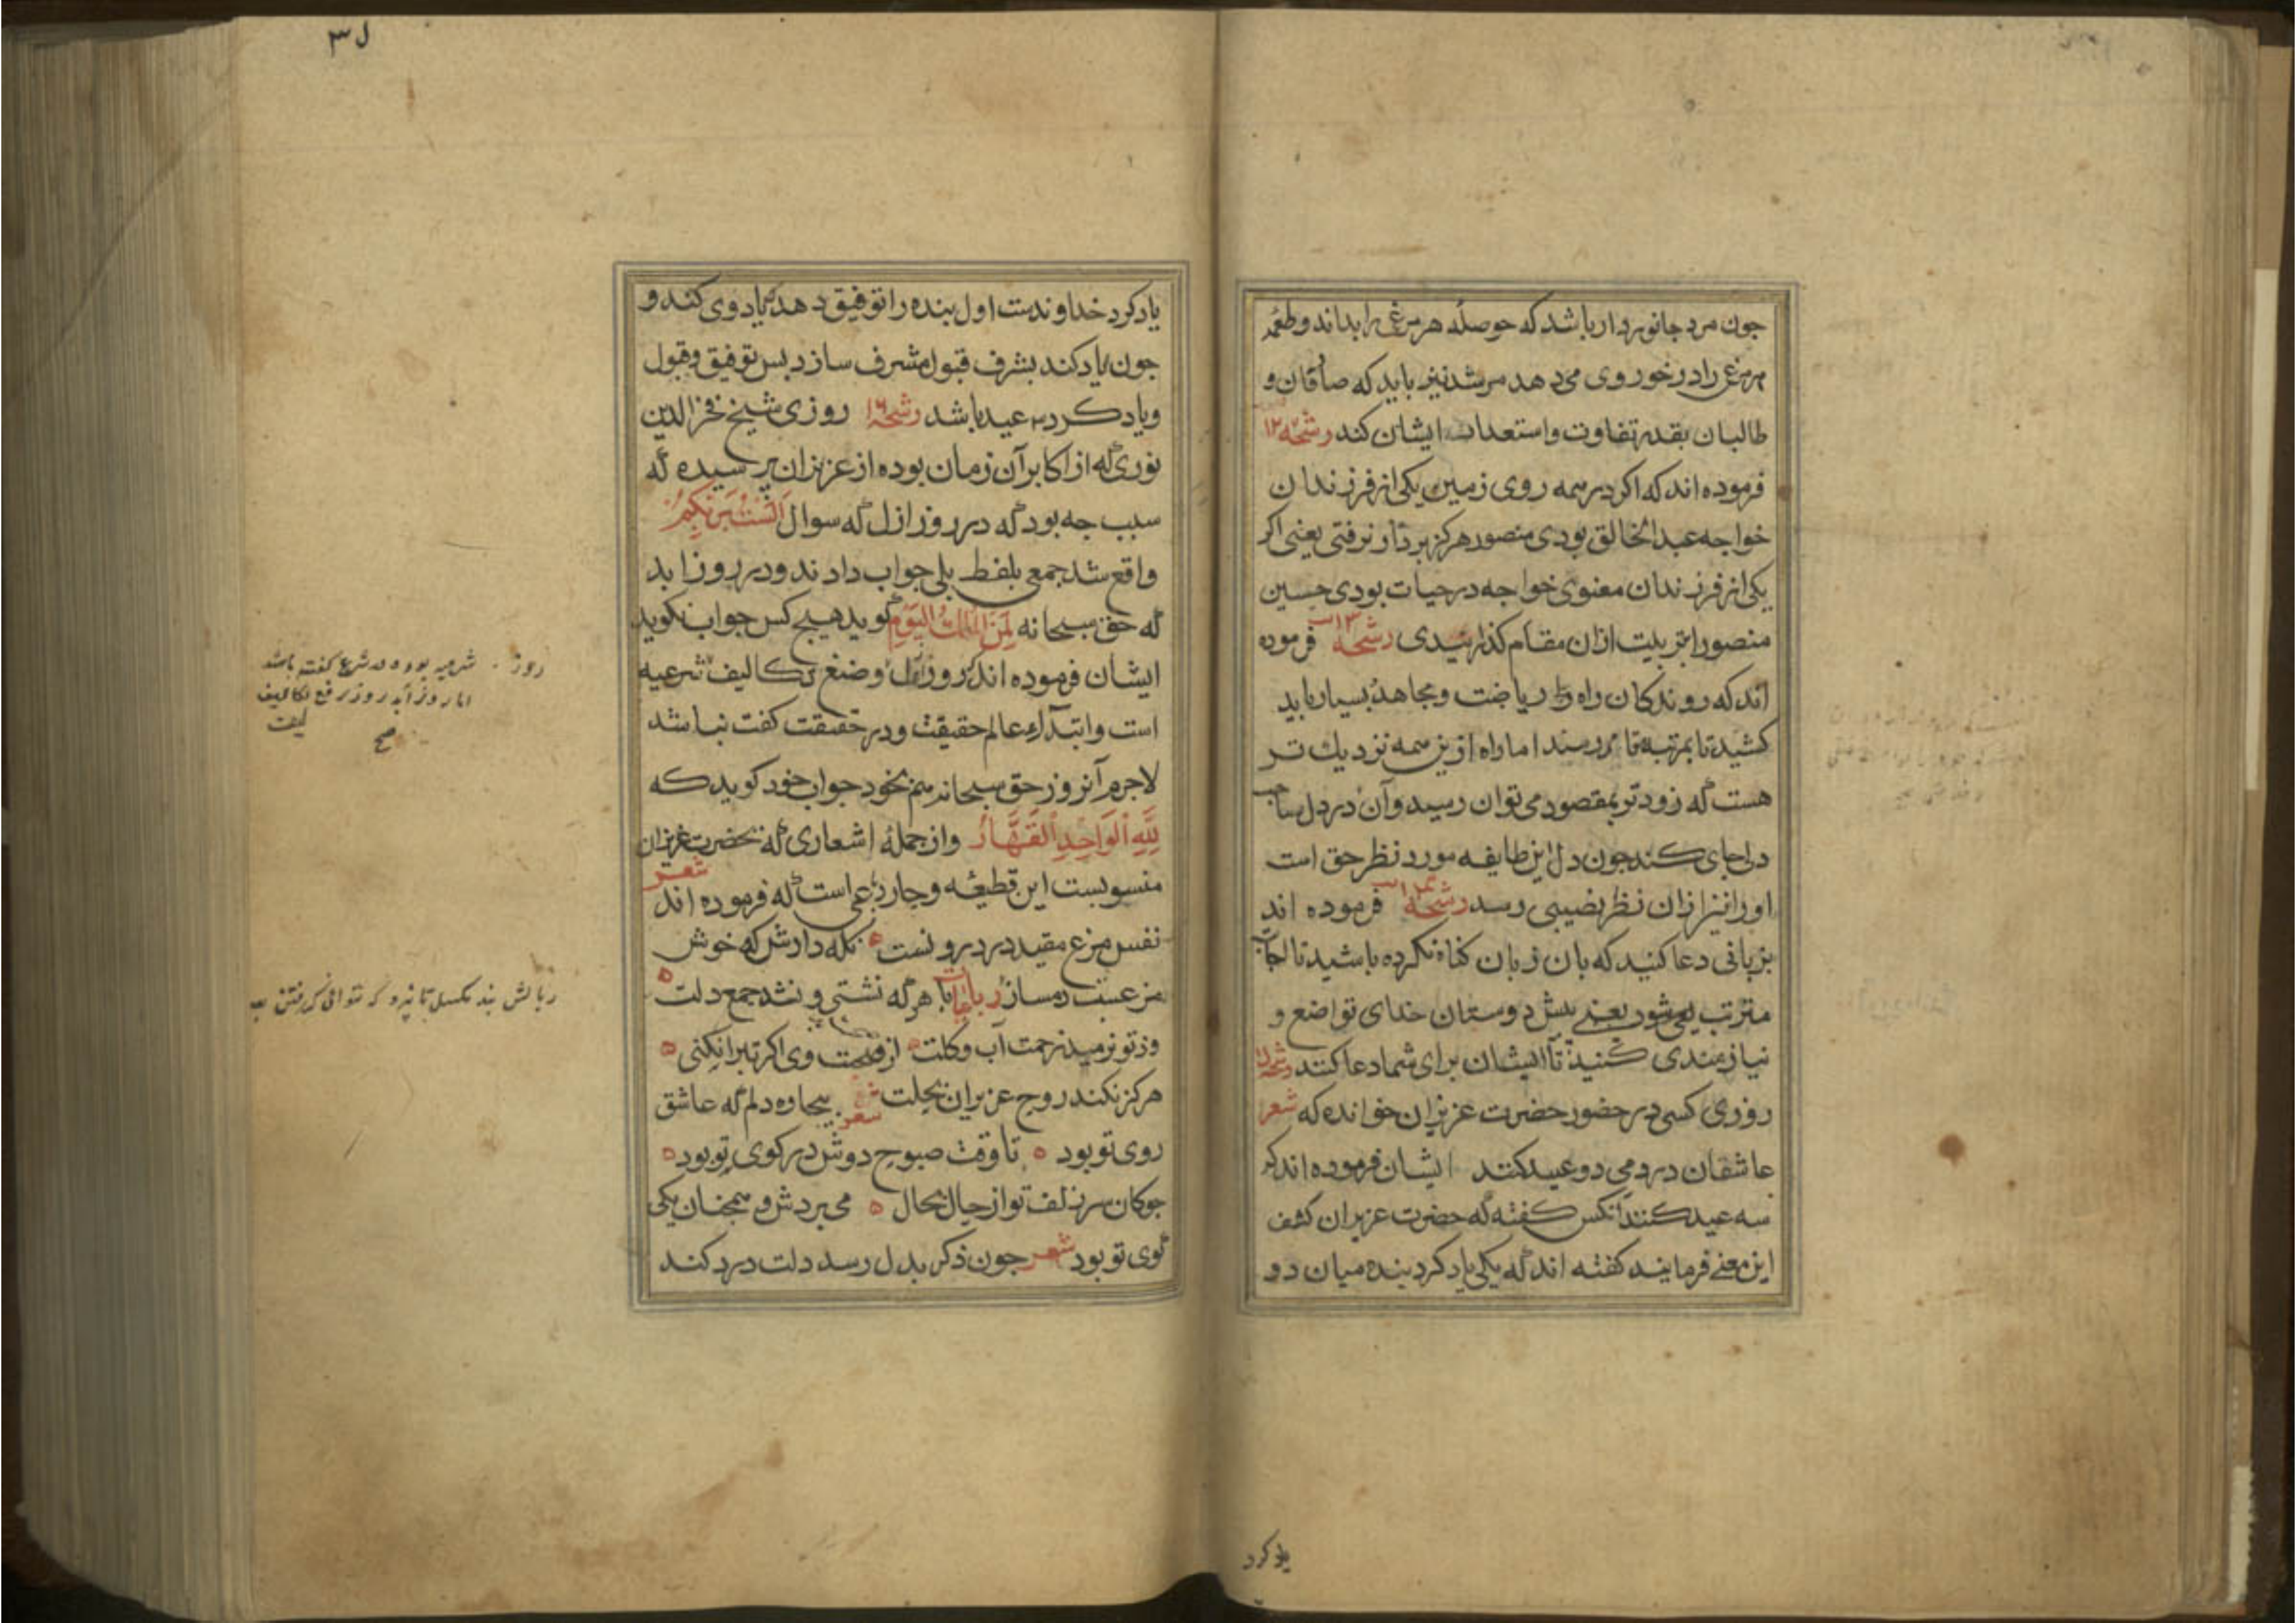 جون مرد جانوردار باشد که حوصلهٔ هر مرغی را بداند و طعمهٔ
هر مرغی را درخور وی می دهد مرشد نیز باید که صادقان و
طالبان بقدر تفاوت و استعداد ایشان کند رشحه ۱۲
فرموده اند که اکر در همه روی زمین یکی از فرزندان
خواجه عبدالخالق بودی منصور هرکز بر دار نرفتی یعنی اکر
یکی از فرزندان معنوی خواجه در حیات بودی حسین
منصور را بتربیت ازان مقام کذرانیدی رشحه ۱۳ فرموده
اند که روندکان راه را ریاضت و مجاهدهٔ بسیار باید
کشید تا بمرتبه رسند اما راه ازین همه نزدیك تر
هست که زودتر بمقصود می توان رسید و آن در دل صاحب
دلی جای کند جون دل این طایفه مورد نظر حق است
او را نیز ازان نظر نصیبی رسد رشحه ۱۴ فرموده اند
بزبانی دعا کنید که بان زبان کناه نکرده باشید تا اجابت
مترتب شود یعنی بیش دوستان خدای تواضع و
نیازمندی کنید تا ایشان برای شما دعا کنند رشحه ۱۵
روزی کسی در حضور حضرت عزیزان خوانده که شعر
عاشقان در دمی دو عید کنند ایشان فرموده اند که
سه عید کنند آنکس کفته که حضرت عزیزان کشف
این معنی فرمایند کفته اند که یکی یاد کرد بنده میان دو
یاد کرد
ل۳
یاد کرد خداوندست اول بنده را توفیق دهد که یاد وی کند و
جون یاد کند بشرف قبول مشرف سازد بس توفیق و قبول
و یاد کرد سه عید باشد رشحه ۱۶ روزی شیخ فخر الدین
نوری که از اکابر آن زمان بوده از عزیزان برسیده که
سبب جه بود که در روز ازل که سوال اَلَسْتُ بِرَبِّكُمْ
واقع شد جمعی بلفظ بلی جواب دادند و در روز ابد
که حق سبحانه لِمَنِ الْمُلْكُ الْيَوْمَ کوید هیج کس جواب نکوید
ایشان فرموده اند که روز ازل وضع تکالیف شرعیه
است و ابتدآء عالم حقیقت و در حقیقت کفت نباشد
لاجرم آنروز حق سبحانه هم بخود جواب خود کوید که
لِلَّهِ الْوَاحِدِ الْقَهَّارِ و از جملهٔ اشعاری که بحضرت عزیزان
منسوبست این قطعه و جار رباعی است که فرموده اند شعر
نفس مرغ مقید در درونست نکه دارش که خوش
مرغیست دمساز رباعیات با هر که نشستی و نشد جمع دلت
وز تو نرمید زحمت آب و کلت از صحبت وی اکر تبرا نکنی
هرکز نکند روح عزیزان بحلت شعر بیجاره دلم که عاشق
روی تو بود تا وقت صبوح دوش در کوی تو بود
جوکان سر زلف تو از حال بحال می بردش و همجنان یکی
کوی تو بود شعر جون ذکر بدل رسد دلت درد کند
روز شرعیه بود و در شرع کفت باشد
اما روز ابد روز رفع تکالیف
صح
ز بالش بند مکسل تا نبرد که نتوانی کرفتن